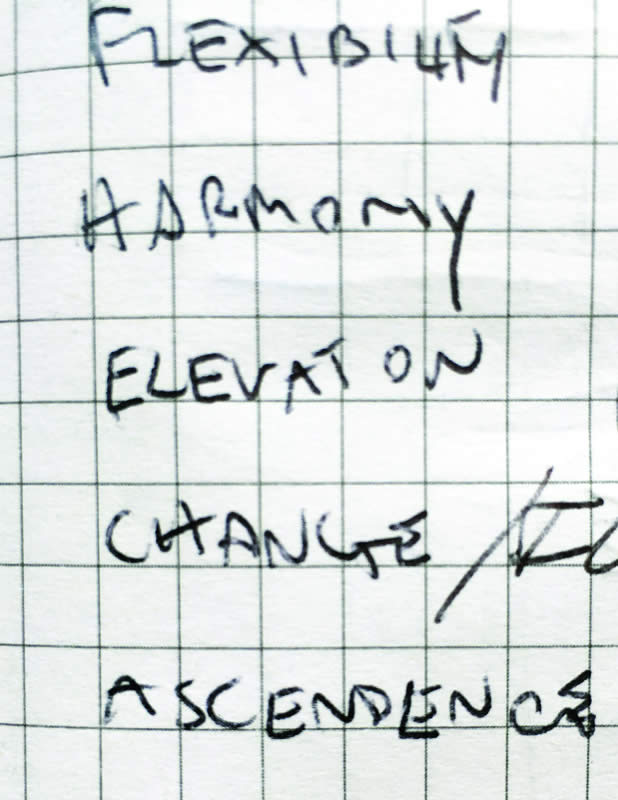 FLEXIBILITY
HARMONY
ELEVATON
CHANGE /
ASCENDENCE